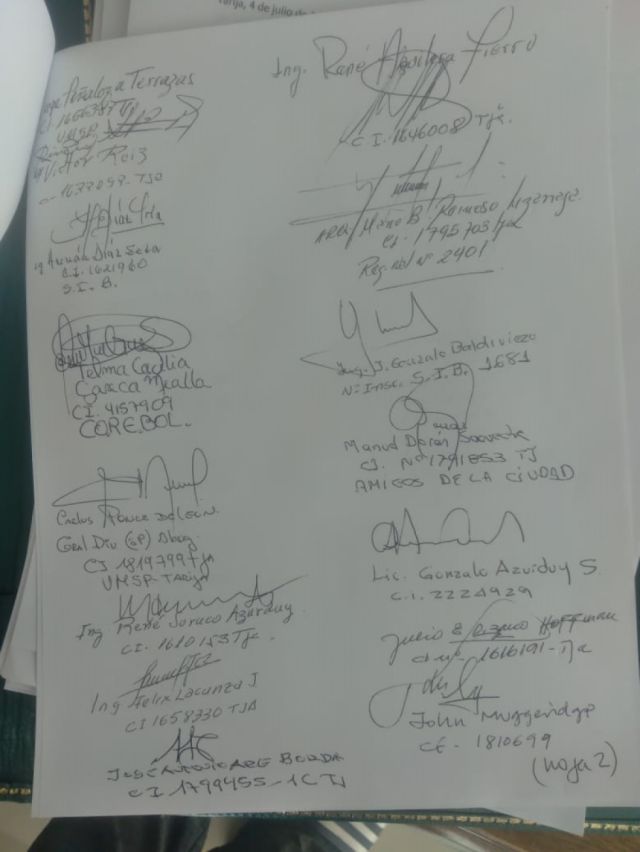 Tarija, 4 de julio
Peñaloza Terrazas
C.I. 1656387 TJ
UMSP
Victor Ruiz
1677099 - TJA
Hernán Díaz Seta
C.I. 1621960
S.I.B.
Telma Cecilia
Gareca Mealla
C.I. 4157909
COREBOL.
Carlos Ponce De León
Gral Div (SP) Abog
CI 1819799 Tja
UMSP-Tarija
Ing René Joruco Azurduy
CI. 1610153 Tja.
Ing Felix Lacunza J
CI 1658330 TJA
JOSÉ ANTONIO ARCE BORDA
CI 1799455-1C TJ
Ing. René Aguilera Fierro
C.I. 1646008 Tja.
Mario B. Raimoso
CI. 1795703 Tja
Reg. Nal Nº 2401
Ing. J. Gonzalo Baldiviezo
Nº Insc. S.I.B. 1681
Manuel Durán Saavedra
CI. Nº 1791853 TJ
AMIGOS DE LA CIUDAD
Lic. Gonzalo Azurduy S
C.I. 2224929
Julio E Hoffman
1616191 - Tja
John Muggeridge
CE - 1810699
(hoja 2)